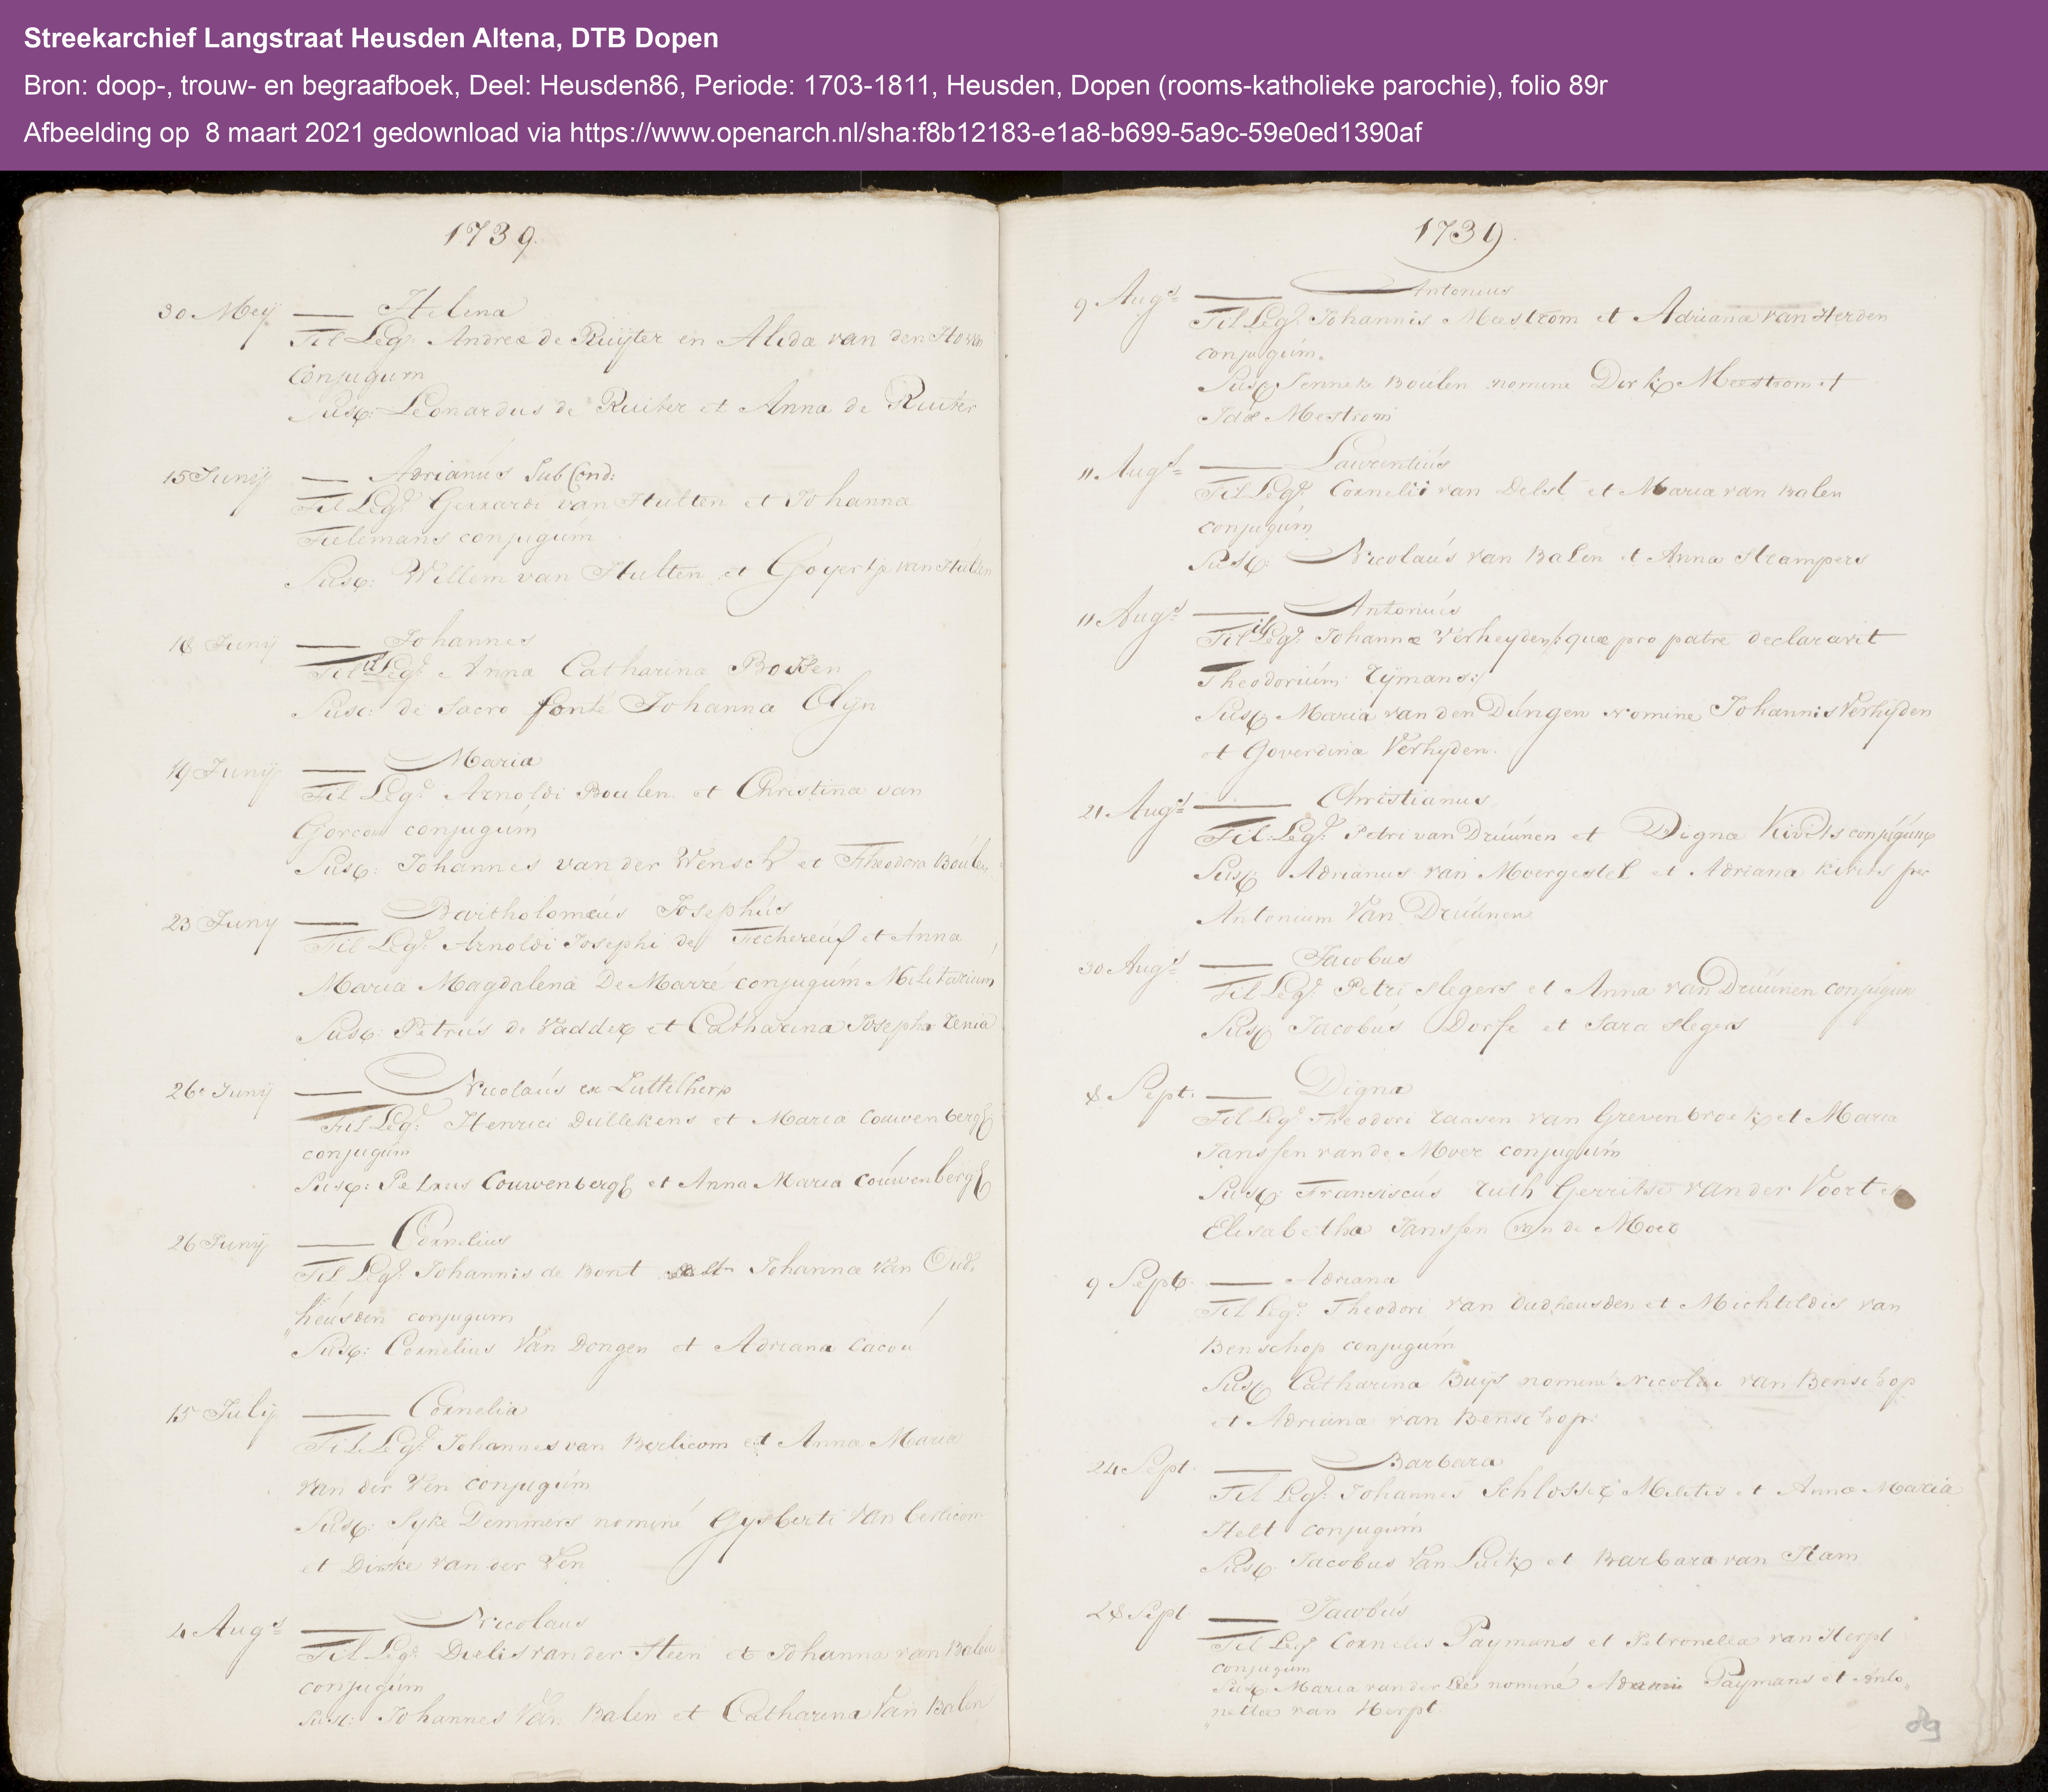 Streekarchief Langstraat Heusden Altena, DTB Dopen
Bron: doop-, trouw- en begraafboek, Deel: Heusden86, Periode: 1703-1811, Heusden, Dopen (rooms-katholieke parochie), folio 89r
Afbeelding op 8 maart 2021 gedownload via https://www.openarch.nl/sha:f8b12183-e1a8-b699-5a9c-59e0ed1390af
1739.
30 Meÿ — Helena
Fil Leg: Andreæ de Ruijter en Alida van den Hoven
Conjugum
Susc: Leonardus de Ruiter et Anna de Ruiter
15 Junÿ — Adrianús Sub Cond:
Fil Leg: Gerrardi van Hulten et Johannæ
Tielemans conjugúm
Susc: Willem van Hulten et Goyertje van Hulten
18 Junÿ — Johannes
Fil ill Leg: Anna Catharina Bossen
Susc: de Sacro fonte Johanna Clÿn
19 Junÿ — Maria
Fil Leg: Arnoldi Boulen et Christina van
Gorcom conjugúm
Susc: Johannes van der Wensch et Theodora Boúlen
23 Juny — Bartholomæús Josephús
Fil Leg: Arnoldi Josephi de Fechereúx et Anna
Maria Magdalena De Marré conjugúm Militarium
Susc: Petrús de Vadder et Catharina Josepha Zenia
26 Junÿ — Nicolaús ex Luttelherp
Fil Leg: Henrici Dullekens et Maria Couwenbergh
conjugúm
Susc: Petrus Couwenbergh et Anna Maria Coúwenbergh
26 Junÿ — Cornelius
Fil Leg: Johannis de Bont Johannæ Van Oud,
„heúsden conjugum
Susc: Cornelius Van Dongen et Adriana Cacou
15 Julÿ — Cornelia
Fil Leg: Johannes van Berlicom et Anna Maria
Van der Ven conjugúm
Susc: Syke Demmers nominé Gysberti Van berlicom
et Dirske van der Ven
4 Augs — Nicolaus
Fil Leg: Dielis van der Steen et Johanna van Balen
conjugúm
Susc: Johannes Van Balen et Catharina Van Balen
1739.
9 Augs — Antonius
Fil Leg: Johannis Mestrom et Adrianæ van Herden
conjugúm.
Susc Jenneke Boúlen nomine Dirk Mestrom et
Idæ Mestrom
11 Augs — Laurentiús
Fil Leg: Cornelii van Delst et Maria van Balen
conjugúm
Susc: Nicolaús van Balen et Anna Strampers
11 Augs — Antoniús
Fil ill Leg: Johannæ Verheyden /: quæ pro patre declaravit
Theodoriúm Zÿmans:/
Susc Maria van den Dúngen nomine Johannis Verhÿden
et Goverdina Verhyden.
21 Augs — Christianus
Fil: Leg: Petri van Drúúnen et Digna Kivits conjúgúm
Susc: Adrianus van Moergestel et Adriana kivits per
Antonium Van Drúúnen
30 Augs — Jacobus
Fil Leg: Petri Slegers et Anna van Drúúnen conjúgum
Susc Jacobús Dorfe et Sara Slegers
8 Sept: — Digna
Fil Leg: Theodori Zaasen van Grevenbroek et Maria
Janssen van de Moer conjugúm
Susc: Franciscús Zuth Gerritse van der Voort et
Elisabetha Janssen van de Moer
9 Sept. — Adriana
Fil Leg: Theodori van Oudheusden et Michteldis van
Benschop conjugúm
Susc Catharina Buijs nomine Nicolai van Benschop
et Adrianæ van Benschop.
24 Sept. — Barbara
Fil Leg: Johannes Schlosser Militis et Anna Maria
Helt conjugúm
Susc: Jacobus Van Luik et Barbara van Ham
28 Sept — Jacobús
Fil Leg Cornelis Paymans et Petronella van Herpt
conjugum
Susc: Maria van der Lee nominé Adami Paymans et Anto„
„nettæ van Herpt.
89